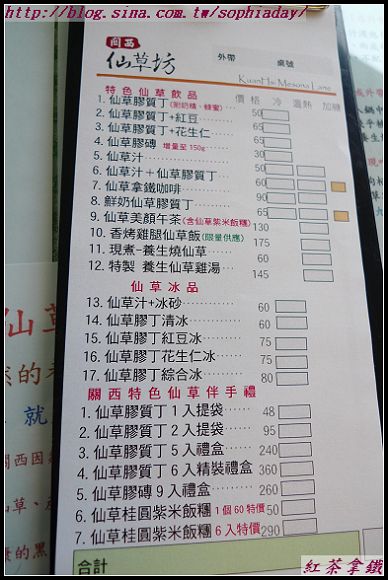 http://blog.sina.com.tw/sophiaday/
關西
仙草坊
外帶 桌號
KuanHsi Mesona Lane
特色仙草飲品 價格 冷 溫熱 加糖
1. 仙草膠質丁(附奶精、糖蜜) 50
2. 仙草膠質丁+紅豆 65
3. 仙草膠質丁+花生仁 65
4. 仙草膠磚 增量至150g 30
5. 仙草汁
6. 仙草汁+仙草膠質丁 60
7. 仙草拿鐵咖啡 90
8. 鮮奶仙草膠質丁 65
9. 仙草美顏午茶(含仙草紫米飯糰) 130
10. 香烤雞腿仙草飯(限量供應) 175
11. 現煮-養生燒仙草 60
12. 特製 養生仙草雞湯 145
仙草冰品
13. 仙草汁+冰砂 60
14. 仙草膠丁清冰 60
15. 仙草膠丁紅豆冰 75
16. 仙草膠丁花生仁冰 75
17. 仙草膠丁綜合冰 80
關西特色仙草伴手禮
1. 仙草膠質丁1入提袋 48
2. 仙草膠質丁2入提袋 95
3. 仙草膠質丁5入禮盒 240
4. 仙草膠質丁6入精裝禮盒 360
5. 仙草膠磚9入禮盒 260
6. 仙草桂圓紫米飯糰 1個60特價 50
7. 仙草桂圓紫米飯糰 6入特價 290
合計
仙草
然的
就
關西因
仙草、
的黑
紅茶拿鐵